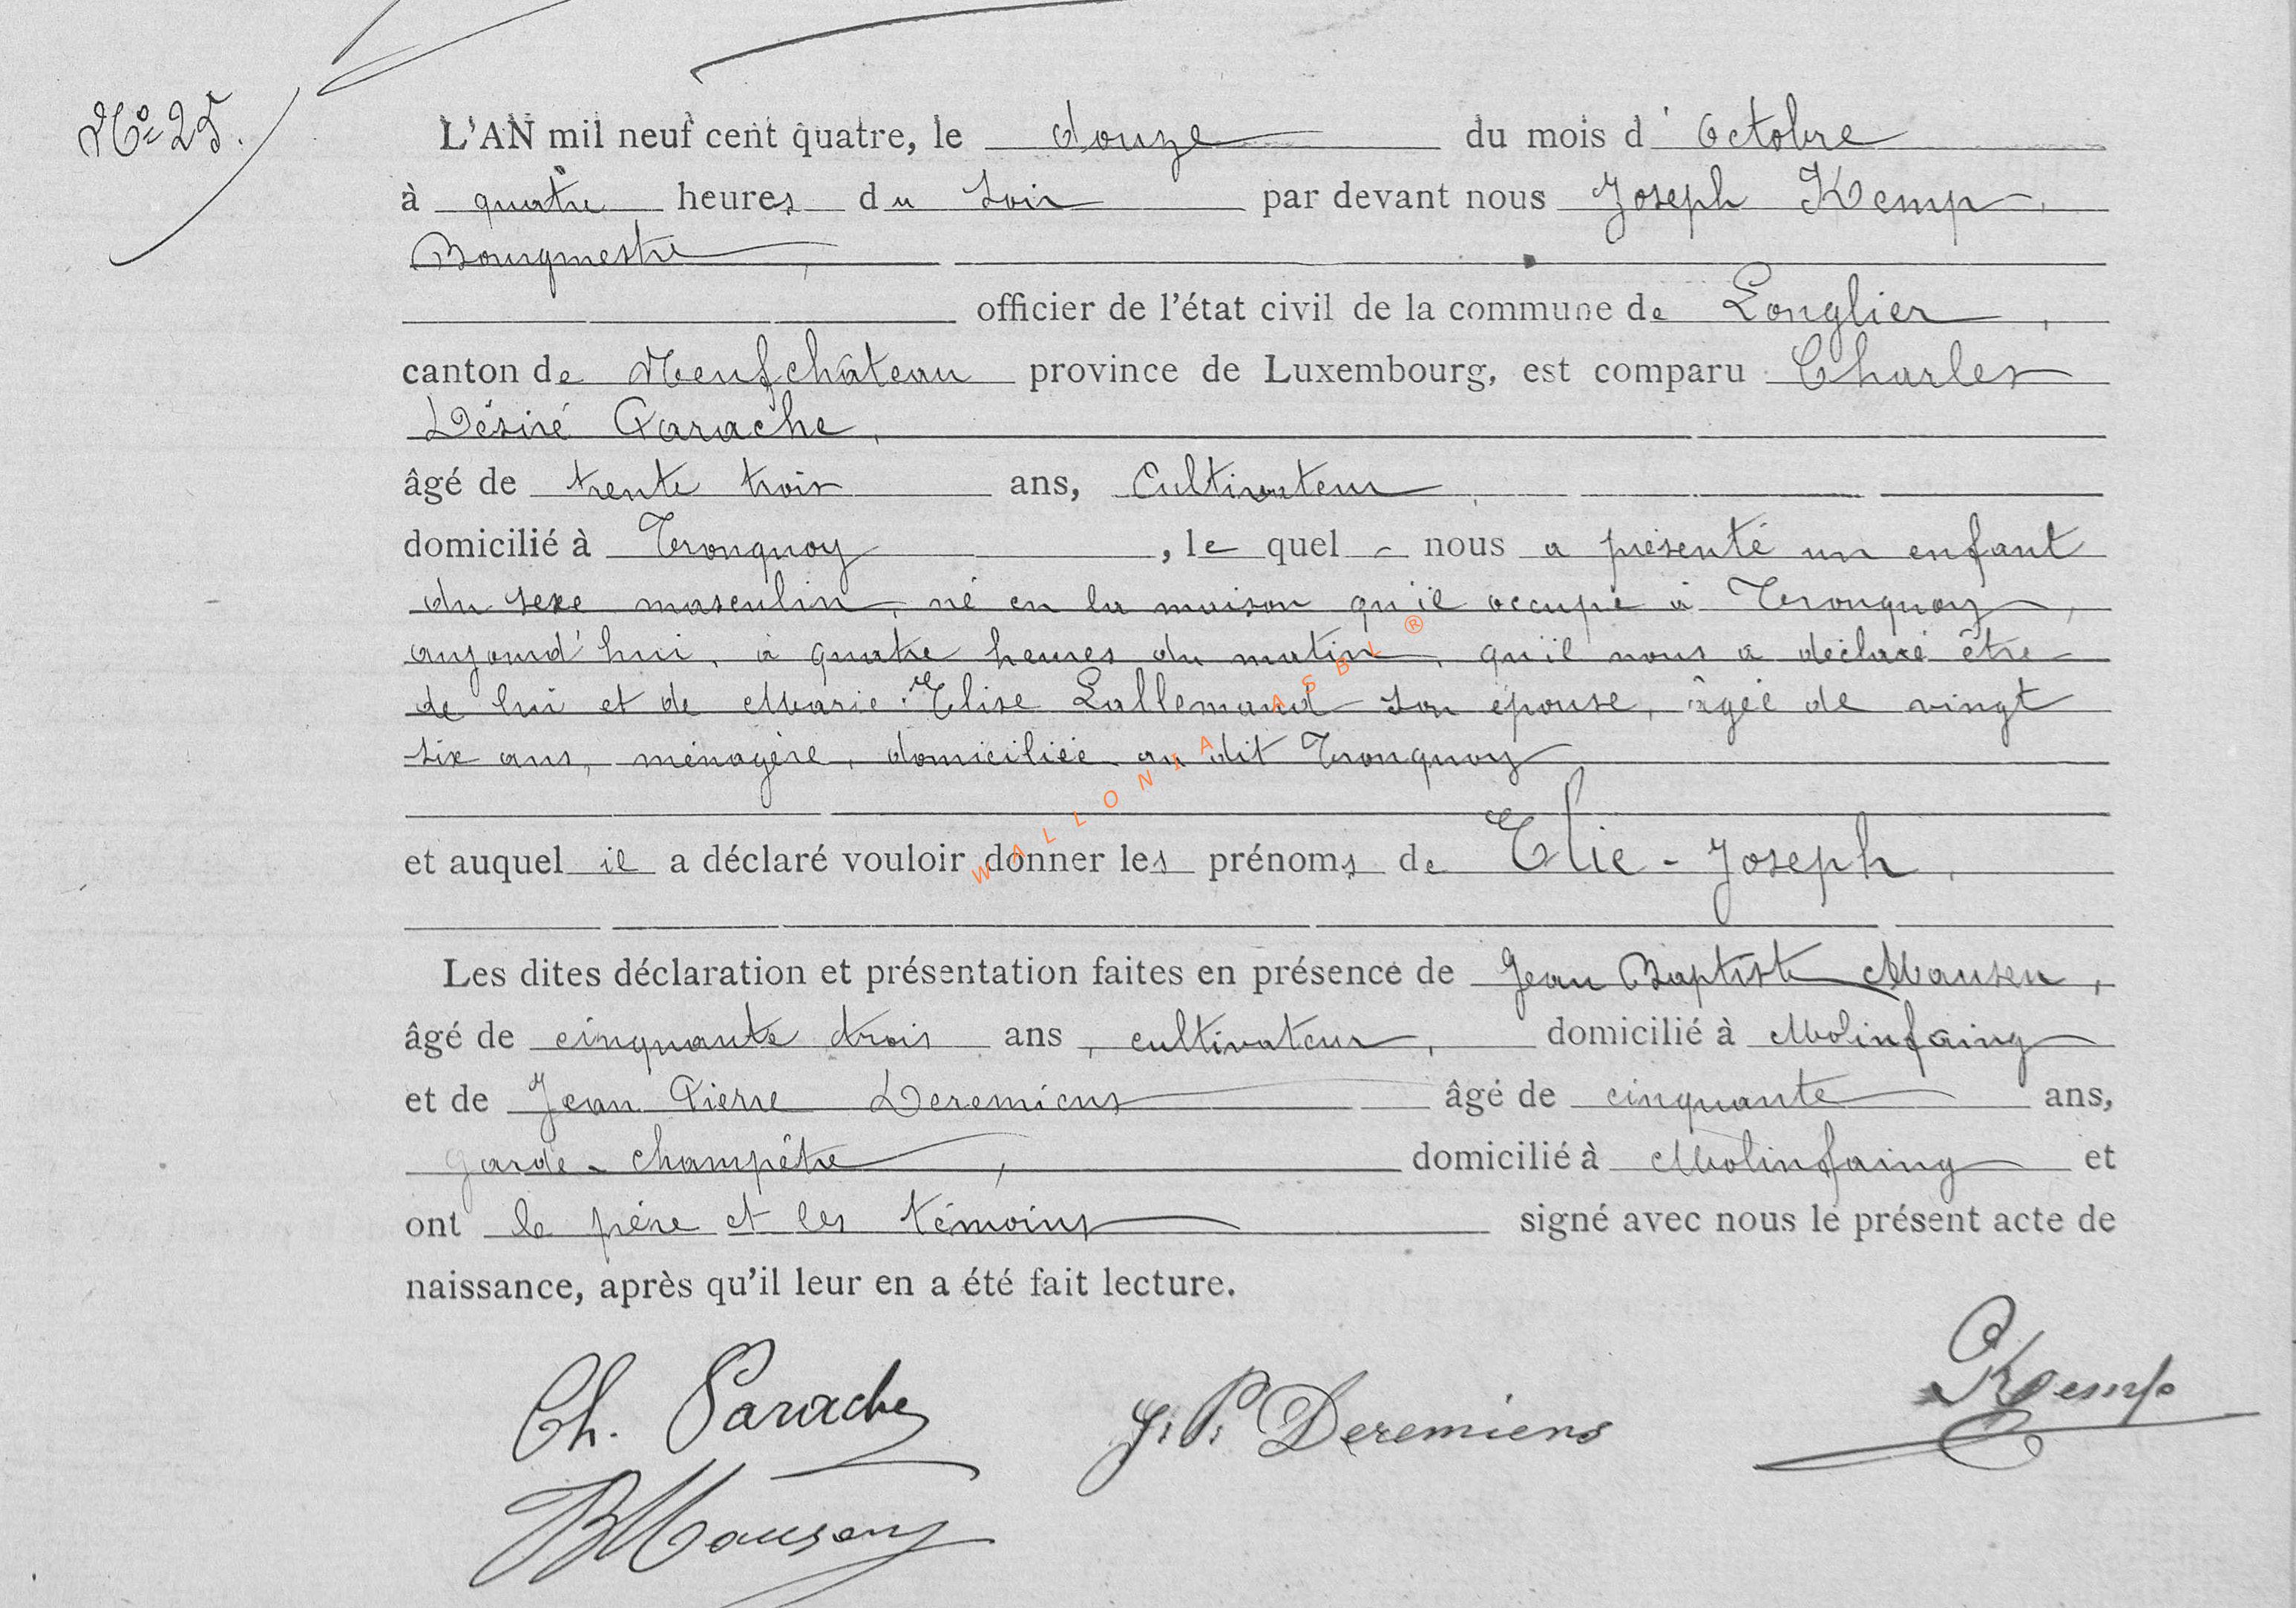 N° 25.
L'AN mil neuf cent quatre, le douze du mois d'Octobre
à quatre heures du soir par devant nous Joseph Kemp,
Bourgmestre,
officier de l'état civil de la commune de Longlier,
canton de Neufchâteau province de Luxembourg, est comparu Charles
Désiré Parache,
âgé de trente trois ans, Cultivateur,
domicilié à Tronquoy, le quel - nous a présenté un enfant
du sexe masculin, né en la maison qu'il occupe à Tronquoy,
aujourd'hui, à quatre heures du matin, qu'il nous a déclaré être
de lui et de Marie Elise Lallemand son épouse, âgée de vingt
six ans, ménagère, domiciliée au dit Tronquoy
et auquel il a déclaré vouloir donner les prénoms de Elie - Joseph,
Les dites déclaration et présentation faites en présence de Jean Baptiste Mausen,
âgé de cinquante trois ans, cultivateur, domicilié à Molinfaing
et de Jean Pierre Deremiens âgé de cinquante ans,
garde-champêtre, domicilié à Molinfaing et
ont le père et les témoins signé avec nous le présent acte de
naissance, après qu'il leur en a été fait lecture.
Ch. Parache J. P. Deremiens Kemp
WALLONIA ASBL ®